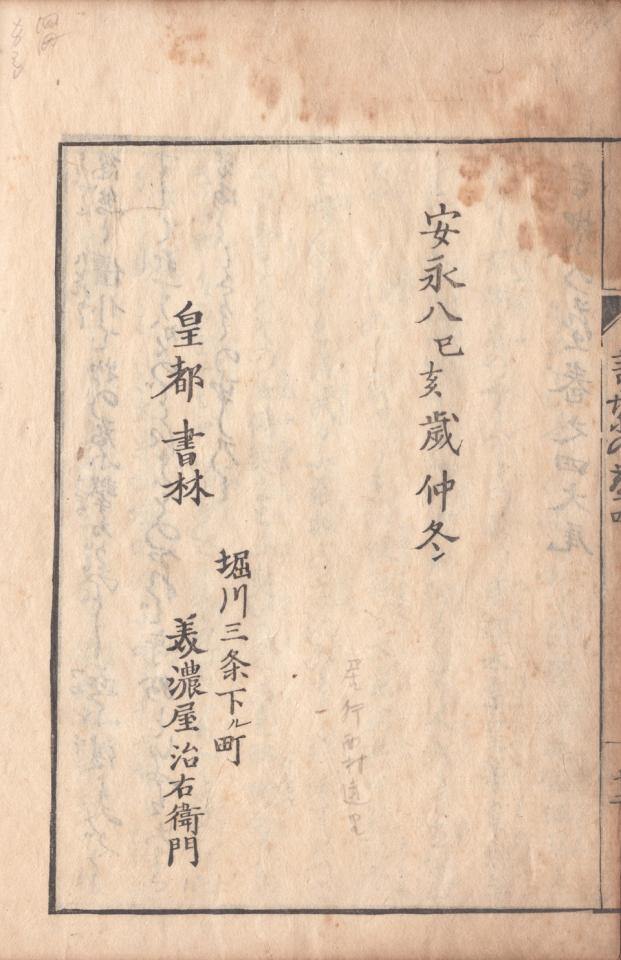 安永八己亥歳仲冬
堀川三条下ル町
皇都書林
美濃屋治右衛門